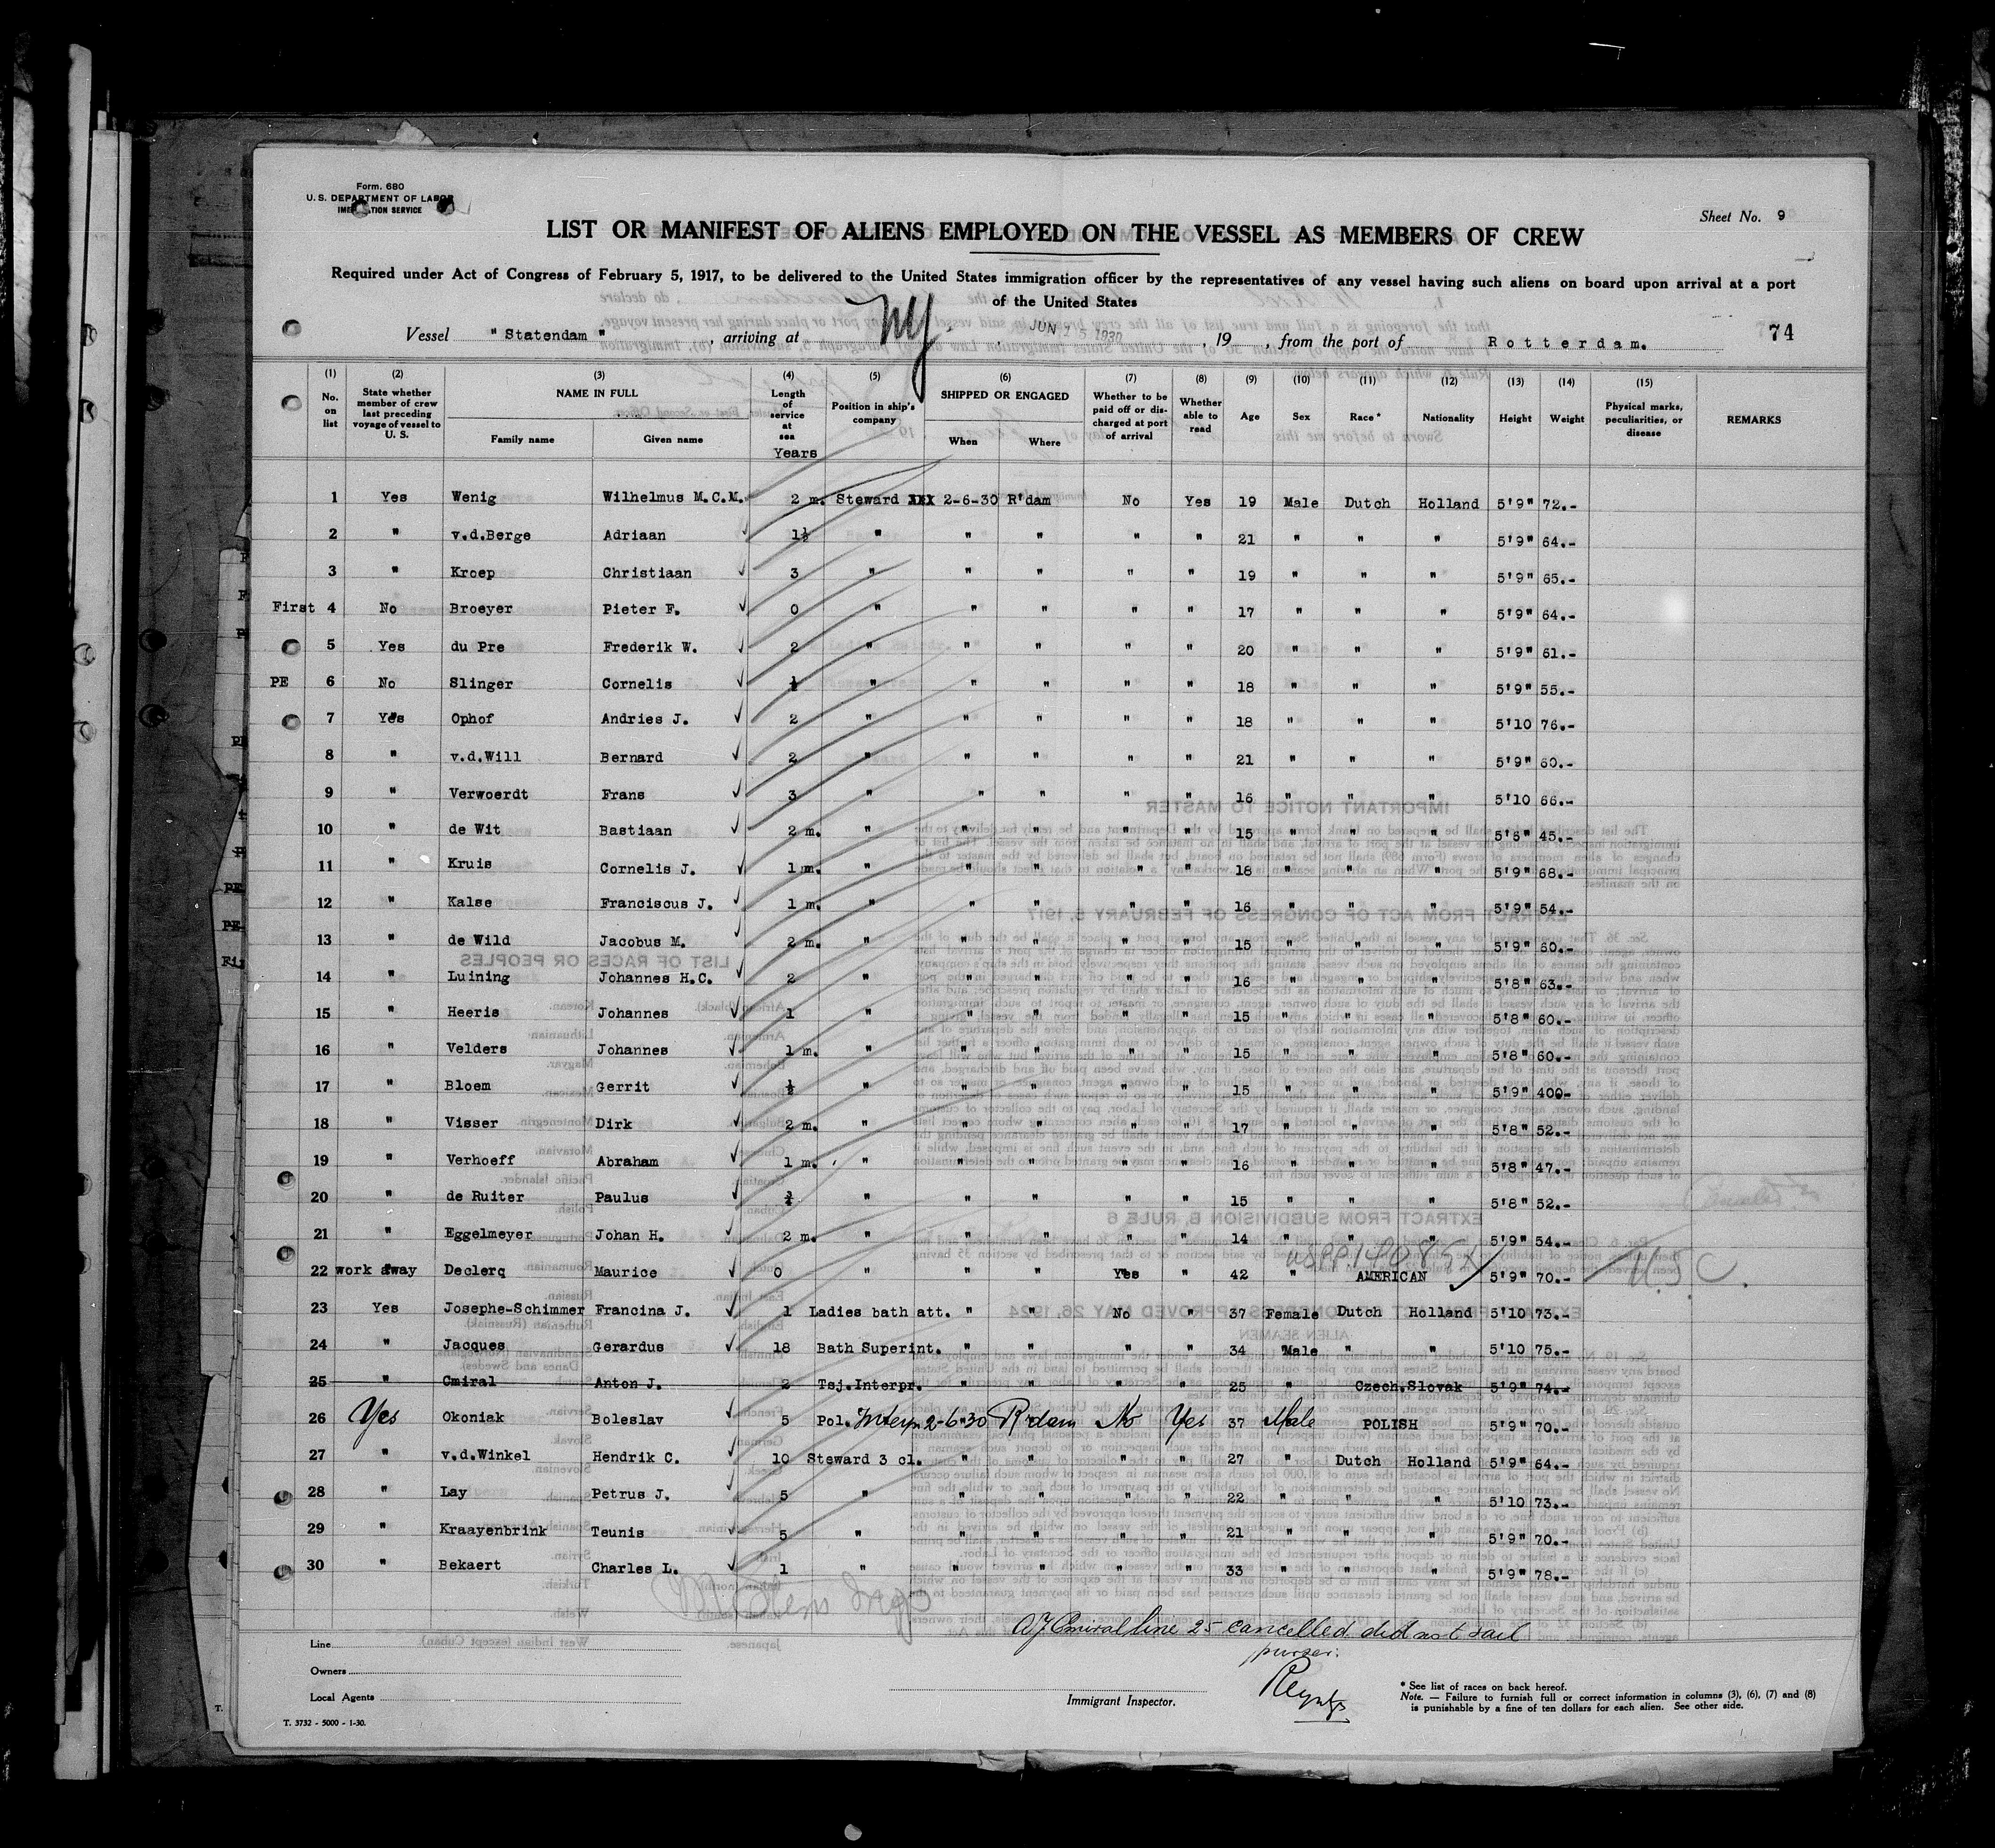 Form. 680
U. S. DEPARTMENT OF LABOR
IMMIGRATION SERVICE
Sheet No. 9
LIST OR MANIFEST OF ALIENS EMPLOYED ON THE VESSEL AS MEMBERS OF CREW
Required under Act of Congress of February 5, 1917, to be delivered to the United States immigration officer by the representatives of any vessel having such aliens on board upon arrival at a port
of the United States
Vessel "Statendam", arriving at NY, JUN 15 1930, 19 , from the port of Rotterdam.
74
(1) No. on list (2) State whether member of crew last preceding voyage of vessel to U. S. (3) NAME IN FULL Family name Given name (4) Length of service at sea Years (5) Position in ship's company (6) SHIPPED OR ENGAGED When Where (7) Whether to be paid off or discharged at port of arrival (8) Whether able to read (9) Age (10) Sex (11) Race* (12) Nationality (13) Height (14) Weight (15) Physical marks, peculiarities, or disease REMARKS
1 Yes Wenig Wilhelmus M.C.M. 2 m. Steward XXX 2-6-30 R'dam No Yes 19 Male Dutch Holland 5'9" 72.-
2 " v.d.Berge Adriaan 1½ " " " " " 21 " " " 5'9" 64.-
3 " Kroep Christiaan 3 " " " " " 19 " " " 5'9" 65.-
First 4 No Broeyer Pieter F. 0 " " " " " 17 " " " 5'9" 64.-
5 Yes du Pre Frederik W. 2 " " " " " 20 " " " 5'9" 61.-
PE 6 No Slinger Cornelis ½ " " " " " 18 " " " 5'9" 55.-
7 Yes Ophof Andries J. 2 " " " " " 18 " " " 5'10 76.-
8 " v.d.Will Bernard 2 " " " " " 21 " " " 5'9" 60.-
9 " Verwoerdt Frans 3 " " " " " 16 " " " 5'10 66.-
10 " de Wit Bastiaan 2 m. " " " " " 15 " " " 5'8" 45.-
11 " Kruis Cornelis J. 1 m. " " " " " 18 " " " 5'9" 68.-
12 " Kalse Franciscus J. 1 m. " " " " " 16 " " " 5'9" 54.-
13 " de Wild Jacobus M. 2 m. " " " " " 15 " " " 5'9" 60.-
14 " Luining Johannes H.C. 2 " " " " " 16 " " " 5'8" 63.-
15 " Heeris Johannes 1 " " " " " 15 " " " 5'8" 60.-
16 " Velders Johannes 1 m. " " " " " 15 " " " 5'8" 60.-
17 " Bloem Gerrit ½ " " " " " 15 " " " 5'9" 400-
18 " Visser Dirk 2 m. " " " " " 17 " " " 5'8" 52.-
19 " Verhoeff Abraham 1 m. " " " " " 16 " " " 5'8" 47.-
20 " de Ruiter Paulus ¾ " " " " " 15 " " " 5'8" 52.-
21 " Eggelmeyer Johan H. 2 m. " " " " " 14 " " " 5'9" 54.-
22 work away Declerq Maurice 0 " " " Yes " 42 " AMERICAN 5'9" 70.- U.S.C.
23 Yes Josephe-Schimmer Francina J. 1 Ladies bath att. " " No " 37 Female Dutch Holland 5'10 73.-
24 " Jacques Gerardus 18 Bath Superint. " " " " 34 Male " " 5'10 75.-
25 " Cmiral Anton J. 2 Tsj.Interpr. " " " " 25 " Czech.Slovak 5'9" 74.-
26 Yes Okoniak Boleslav 5 Pol. Interp. 2-6-30 R'dam No Yes 37 Male POLISH 5'9" 70.-
27 " v.d.Winkel Hendrik C. 10 Steward 3 cl. " " " " 27 " Dutch Holland 5'9" 64.-
28 " Lay Petrus J. 5 " " " " " 22 " " " 5'10 73.-
29 " Kraayenbrink Teunis 5 " " " " " 21 " " " 5'9" 70.-
30 " Bekaert Charles L. 1 " " " " " 33 " " " 5'9" 78.-
AJ Cmiral line 25 cancelled did not sail
purser.
Line
Owners
Local Agents
Immigrant Inspector.
* See list of races on back hereof.
Note. — Failure to furnish full or correct information in columns (3), (6), (7) and (8)
is punishable by a fine of ten dollars for each alien. See other side.
T. 3732 - 5000 - 1-30.